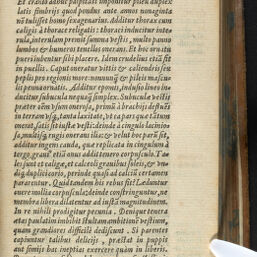 Et credo adhuc palpitanti imponitur pileus duplex
Latis fimbrijs quod pondus ante annos nonaginta
non tulisset homo sexagenarius. Additur thorax cum
caligis à thorace religatis: thoraci inducitur inter-
rula, interulam premit summa vestis, multo panno
lumbos & humeros tenellos onerans. Et hoc ornatu
pueri iubentur sibi placere. Idem crudelius etiam fit
in puellis. Caput oneratur vittis & calendris seu
peplis pro regionis more: & pileis mascu-
lis pennaornatis. Additur eponis, indusio lineo in-
ducitur subucula nequaquam simplex. Subuculæ vestis
præter usum onerosa, primum à brachijs destuens
in terram usque, tanta laxitate, ut ea pars quæ tatum
onerat, satis sit iustæ vesti: deinde à cingulo lacinio-
sa, multis rugis onerans ilia: & velut hoc parum sit,
additur ingens cauda, quæ replicata in cingulum à
tergo, graui etiam onus addit tenero corpusculo. Ta-
les sunt et caligæ, et calcei igrauibus soleis, &
dig. duplici orio, perinde quasi ad calciu certamen
pararentur. Quid tandem his rebus fit? Læduntur
auere mollia corpuscula: deinde constringuntur, ne
membra libera dilatentur ad iustam magnitudinem.
In re nihili prodigitur pecunia. Denique tenera
ætas paulatim imbibit stultam ambitionem vestium,
quam grandiores difficile dediscunt. Si parentes
capiuntur talibus delicijs, præstat in puppis
aut simijs has ineptias exercere quàm in liberis.